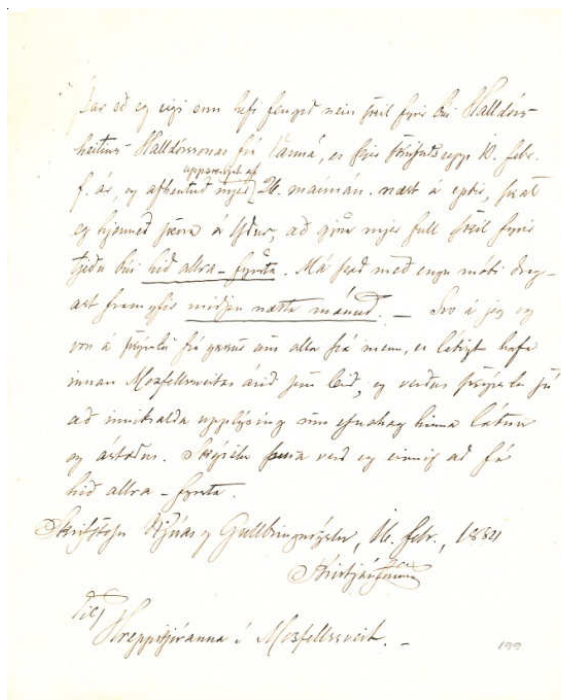 Þar eð eg eigi enn hefi fengið nein skil fyrir bú Halldórs
heitins Halldórssonar frá er fyrir 10. febr.
uppskrifað af
f. ár, og afhentað mjer 26. maímán. næst á eptir, þá
eg hjermeð á Yður, að gjöra mjer full skil fyrir
tjeðu búi hið allra-fyrsta. Má það með engu móti drag-
ast framyfir miðjan næsta mánuð. — Svo á jeg og
von á skýrslu frá um alla þá menn, er látizt hafa
innan Mosfellssveitar árið sem leið, og verður skýrsla sú
að innihalda upplýsing um efnahag hinna látnu
og ástæður. Skýrslu þessa verð eg einnig að fá
hið allra-fyrsta.
Skrifstofu Kjósar og Gullbringusýslu, 16. febr., 1884
Kristján Jónsson
Til
Hreppstjóranna í Mosfellssveit. —
199